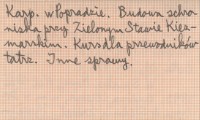 Karp. w Popradzie. Budowa schro-
niska przy Zielonym Stawie Kięż-
marskim. Kurs dla przewodników
tatrz. Inne sprawy.